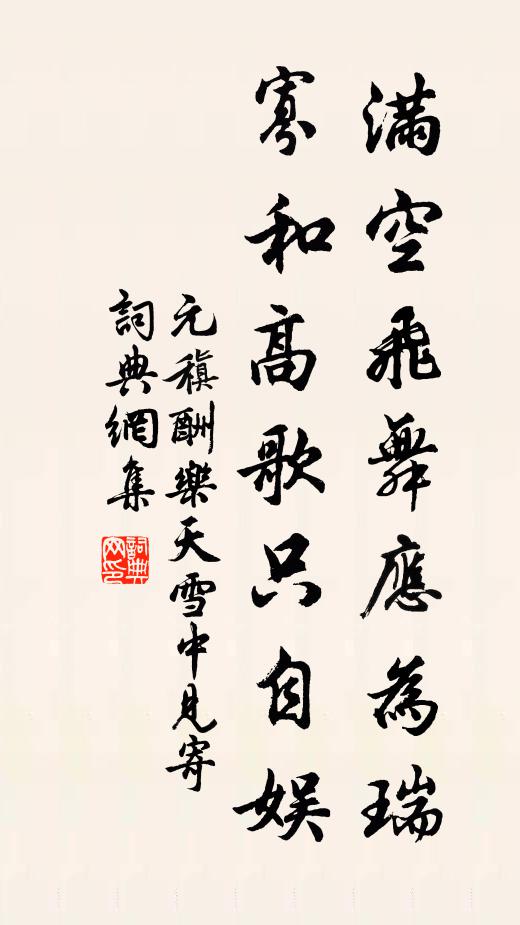 滿空飛舞應為瑞
寡和高歌只自娱
元稹酬樂天雪中見寄
詞典網集
詞典網印